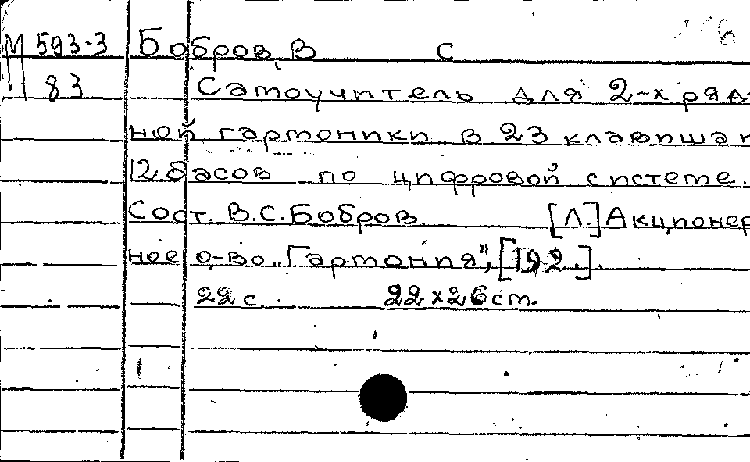 М 593-3 Бобров, В С
83 Самоучитель для 2-х ряд-
ной гармоники в 23 клавиша и
12 басов по цифровой системе.
Сост. В.С. Бобров [Л.] Акционер-
ное о-во „Гармония“, [192 ].
22 с. 22х26 см.